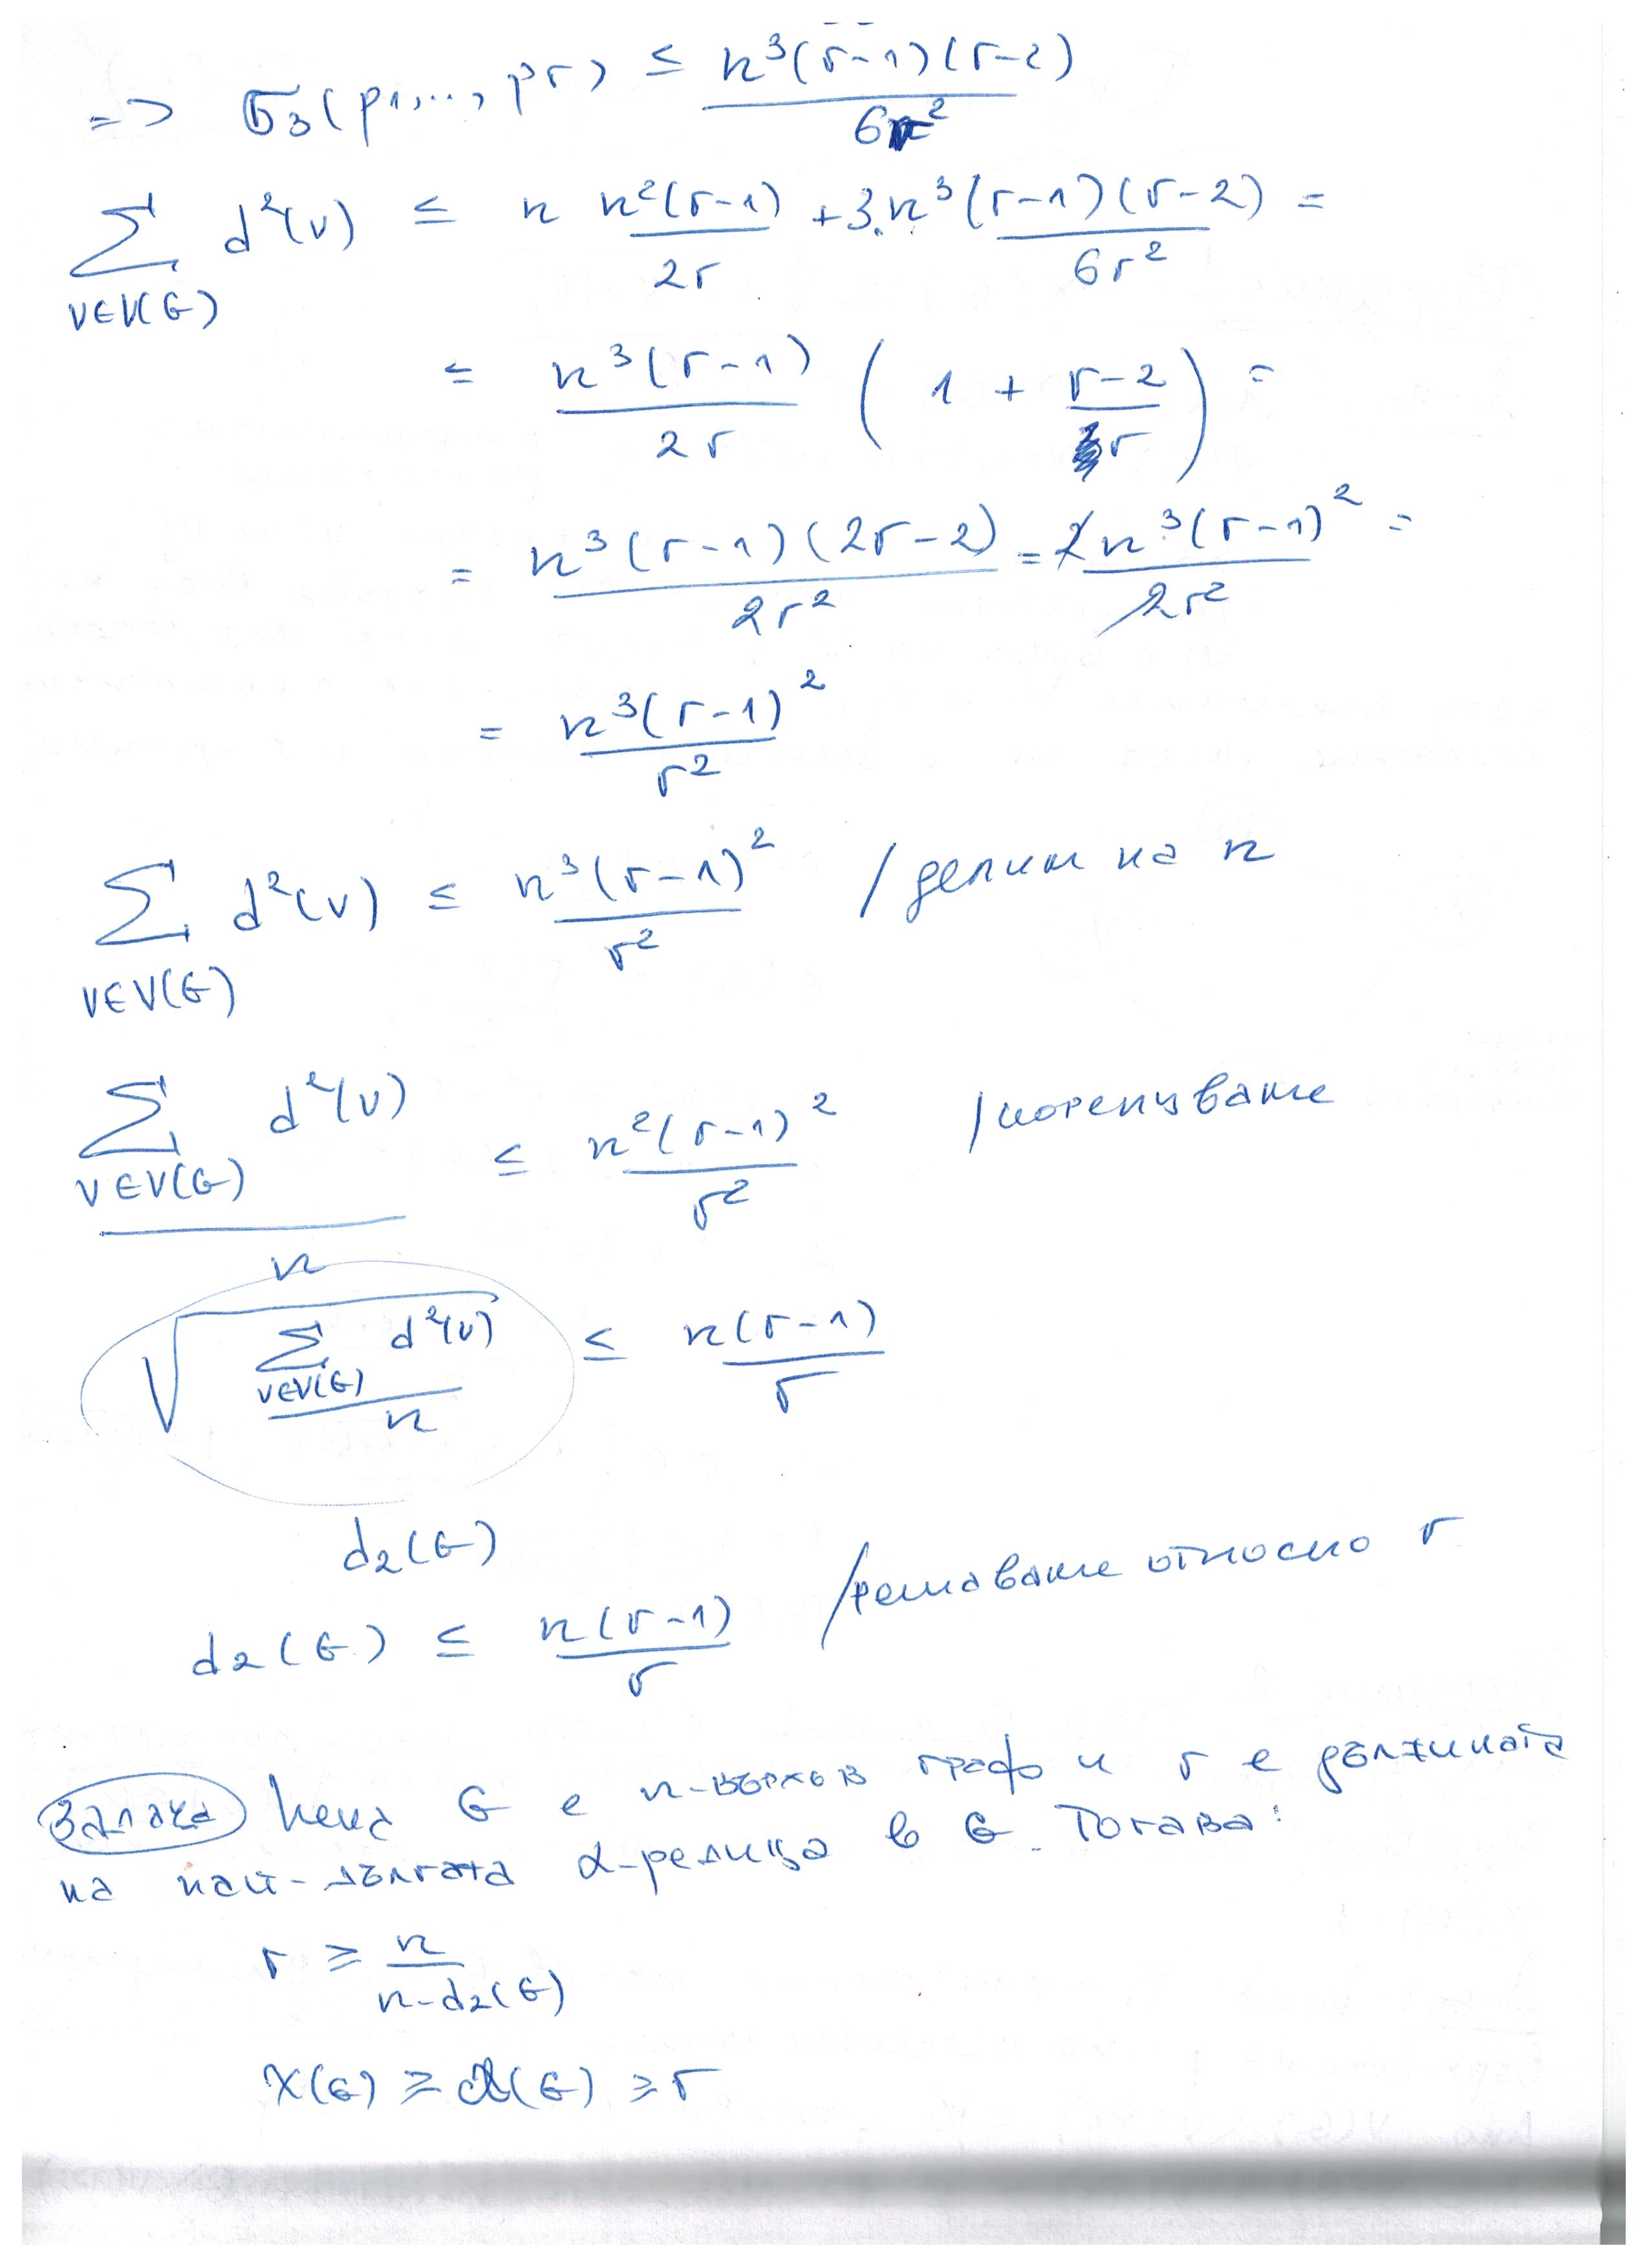 => σ₃(p₁,..., pr) ≤ n³(r-1)(r-2) / 6r²
∑ d²(v) ≤ n n²(r-1) / 2r + 3.n³(r-1)(r-2) / 6r² =
v∈V(G)
= n³(r-1) / 2r (1 + r-2 / r) =
= n³(r-1)(2r-2) / 2r² = 2n³(r-1)² / 2r² =
= n³(r-1)² / r²
∑ d²(v) ≤ n³(r-1)² / r² / делим на n
v∈V(G)
∑ d²(v) / n ≤ n²(r-1)² / r² / коренуваме
v∈V(G)
√(∑ d²(v) / n) ≤ n(r-1) / r
v∈V(G)
d₂(G)
d₂(G) ≤ n(r-1) / r / решаваме относно r
Задача Нека G е n-върхов граф и r е дължината
на най-дългата α-редица в G. Тогава:
r ≥ n / n-d₂(G)
χ(G) ≥ (G) ≥ r